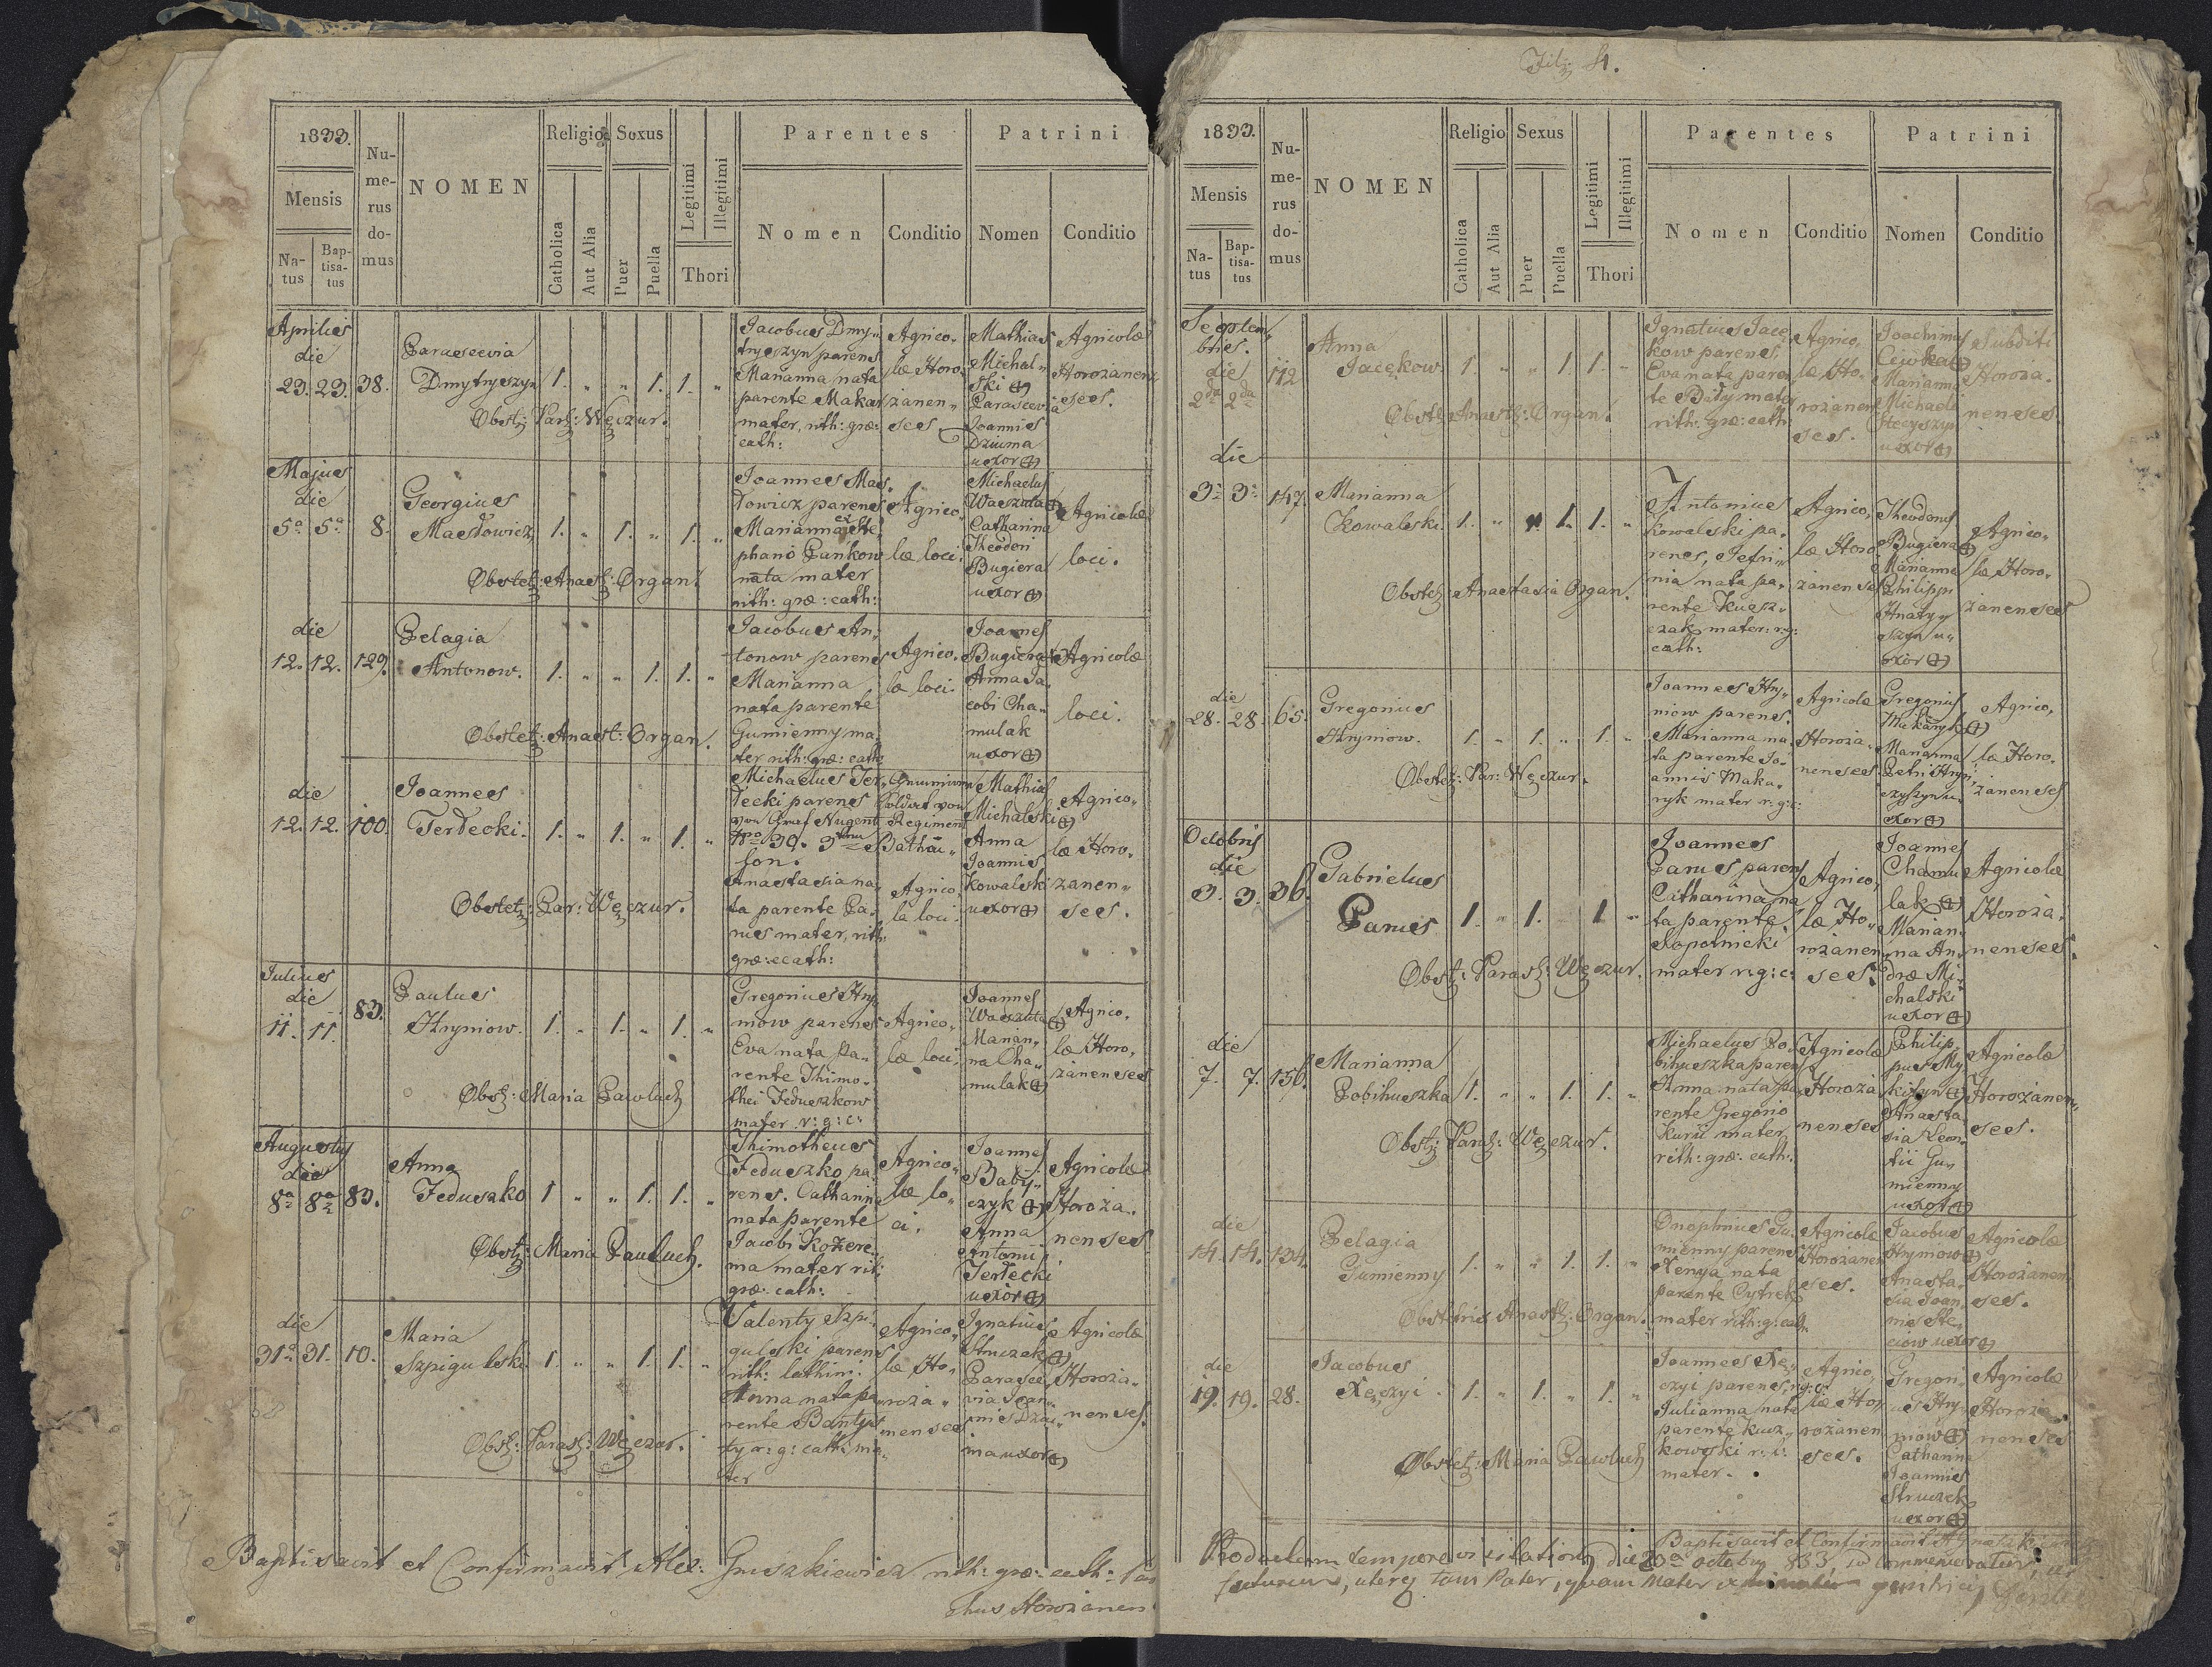 1833.
Mensis
Na-
tus
Bap-
tisa-
tus
Nu-
me-
rus
do-
mus
NOMEN
Religio
Catholica
Aut Alia
Sexus
Puer
Puella
Legitimi
Illegitimi
Thori
Parentes
Nomen
Conditio
Patrini
Nomen
Conditio
Aprilis
die
23. 23. 38.
Parascevia
Dmytryszyn 1. " " 1. 1. "
Obst: Par: Węczur.
Jacobus Dmy-
tryszyn parens
Marianna nata
parente Makar
mater, rith: græ:
cath:
Agrico-
læ Horo-
żanen-
ses
Mathias
Michal-
ski
Parascevia
Joannis
Dziuma
uxor
Agricolæ
Horożanen-
ses.
Majus
die
5a 5a 8.
Georgius
Masłowicz 1. " 1. " 1. "
Obstet: Anast: Organ.
Joannes Mas-
łowicz parens
Marianna ex Ste-
phano Pankow
nata mater
rith: græ: cath:
Agrico-
læ loci.
Michaelus
Waszuta
Catharina
Theodori
Bugiera
uxor
Agricolæ
loci.
die
12. 12. 129.
Pelagia
Antonow. 1. " " 1. 1. "
Obstet: Anast: Organ.
Jacobus An-
tonow parens
Marianna
nata parente
Gumienny ma-
ter rith: græ: cath:
Agrico-
læ loci.
Joannes
Bugiera
Anna Ja-
cobi Cha-
mulak
uxor
Agricolæ
loci.
die
12. 12. 100.
Joannes
Terłecki. 1. " 1. " 1. "
Obstet: Par: Węczur.
Michaelus Ter-
łecki parens
von Graf Nugent Regiment
Nro 30. 3ten Bathai-
lon.
Anastasia na-
ta parente Pa-
nus mater, rith:
græ: cath:
Agrico-
la loci.
Mathias
Michalski
Anna
Joannis
Kowalski
uxor
Agrico-
læ Horo-
żanen-
ses.
Julius
die
11. 11. 83.
Paulus
Hryniow. 1. " 1. " 1. "
Obst: Maria Pawluch
Gregorius Hry-
niow parens
Eva nata pa-
rente Thimo-
thei Feduszkow
mater r: g: c:
Agrico-
læ loci.
Joannes
Waszuta
Marian-
na Cha-
mulak
Agrico-
læ Horo-
żanenses
Augusty
die
8a 8a 83.
Anna
Feduszko 1 " " 1. 1. "
Obst: Maria Pauluch.
Thimotheus
Feduszko pa-
rens. Catharina
nata parente
Jacobi Kożere-
ma mater rit:
græ: cath:
Agrico-
læ lo-
ci.
Joannes
Baby-
czyk
Anna
Antonii
Terłecki
uxor
Agricolæ
Horoża-
nenses
die
31a 31. 10.
Maria
Szpigulski 1. " " 1. 1. "
Obst: Paras: Węczur.
Valenty Szpi-
gulski parens
rith: lathin:
Anna nata pa-
rente Banty-
r: g: cath: ma-
ter
Agrico-
læ Ho-
roża-
nenses
Ignatius
Struzak
Parasce-
via Joan-
nis Dziu-
ma uxor
Agricolæ
Horoża-
nenses.
Baptisavit et Confirmavit Alex: Gruszkiewicz rith: græ: cath: Par
chus Horożanen
4.
1833.
Mensis
Na-
tus
Bap-
tisa-
tus
Nu-
me-
rus
do-
mus
NOMEN
Religio
Catholica
Aut Alia
Sexus
Puer
Puella
Legitimi
Illegitimi
Thori
Parentes
Nomen
Conditio
Patrini
Nomen
Conditio
Septem-
bris.
die
2da 2da 112
Anna
Jacękow. 1. " " 1. 1. "
Obstet: Anast: Organ.
Ignatius Jacę-
kow parens,
Eva nata paren-
te Biły mater
rith: græ: cath:
Agrico-
læ Ho-
rożanen-
ses.
Joachimus
Ciwka
Marianna
Michaeli
Stecyszyn
uxor
Subditi
Horoża-
nenses.
die
3a 3a 147.
Marianna
Kowalski. 1. " " 1. 1. "
Obstet: Anastasia Organ.
Antonius
Kowalski pa-
rens, Jefri-
nia nata pa-
rente Kusz-
czak mater: r: g:
cath:
Agrico-
læ Horo-
żanenses
Theodorus
Bugiera
Marianna
Philippi
Hnaty-
szyn u-
xor
Agrico-
læ Horo-
żanenses
die
28. 28. 65.
Gregorius
Hryniow. 1. " 1. " 1. "
Obstet: Par: Węczur.
Joannes Hry-
niow parens.
Marianna na-
ta parente Jo-
annis Maka-
ryk mater r: g: c:
Agricolæ
Horoża-
nenses.
Gregorius
Makaryk
Marianna
Petri Hry-
czyszyn u-
xor
Agrico-
læ Horo-
żanenses
Octobris
die
3. 3. 36.
Gabrielus
Panus 1. " 1. 1 "
Obst: Paras: Węczur.
Joannes
Panus parens
Catharina na-
ta parente
Kopolnicki
mater r: g: c:
Agrico-
læ Ho-
rożanen-
ses.
Joannes
Chamu-
lak
Marian-
na An-
dræ Mi-
chalski
uxor
Agricolæ
Horoża-
nenses.
die
7. 7. 156.
Marianna
Pobihuszka 1. " " 1. 1. "
Obst: Paras: Węczur.
Michaelus Po-
bihuszka parens
Anna nata pa-
rente Gregorio
Kurii mater
rith: græ: cath:
Agricolæ
Horoża-
nenses
Philip-
pus My-
kityn
Anasta-
sia Leon-
tii Gu-
mienny
uxor
Agricolæ
Horożanen-
ses.
die
14. 14. 134.
Pelagia
Gumienny 1. " " 1. 1. "
Obstetrix Anast: Organ.
Onophrius Gu-
mienny parens
Xenya nata
parente Cytreb
mater rith: g: cath:
Agricolæ
Horożanen-
ses.
Jacobus
Hryniow
Anasta-
sia Joan-
nis Ste-
ciow uxor
Agricolæ
Horożanen-
ses.
die
19. 19. 28.
Jacobus
Xęczyi. 1. " 1. " 1. "
Obstet: Maria Pawluch
Joannes Xę-
czyi parens, r: g: c:
Julianna nata
parente Kucz-
kowski r: l:
mater.
Agrico-
læ Ho-
rożanen-
ses.
Gregori-
us Hry-
niow
Catharina
Joannis
Struzek
uxor
Agricolæ
Horoża-
nenses
Baptisavit et Confirmavit
Productum tempore visitationis die 20a octobris 833,
tam Pater, quam Mater